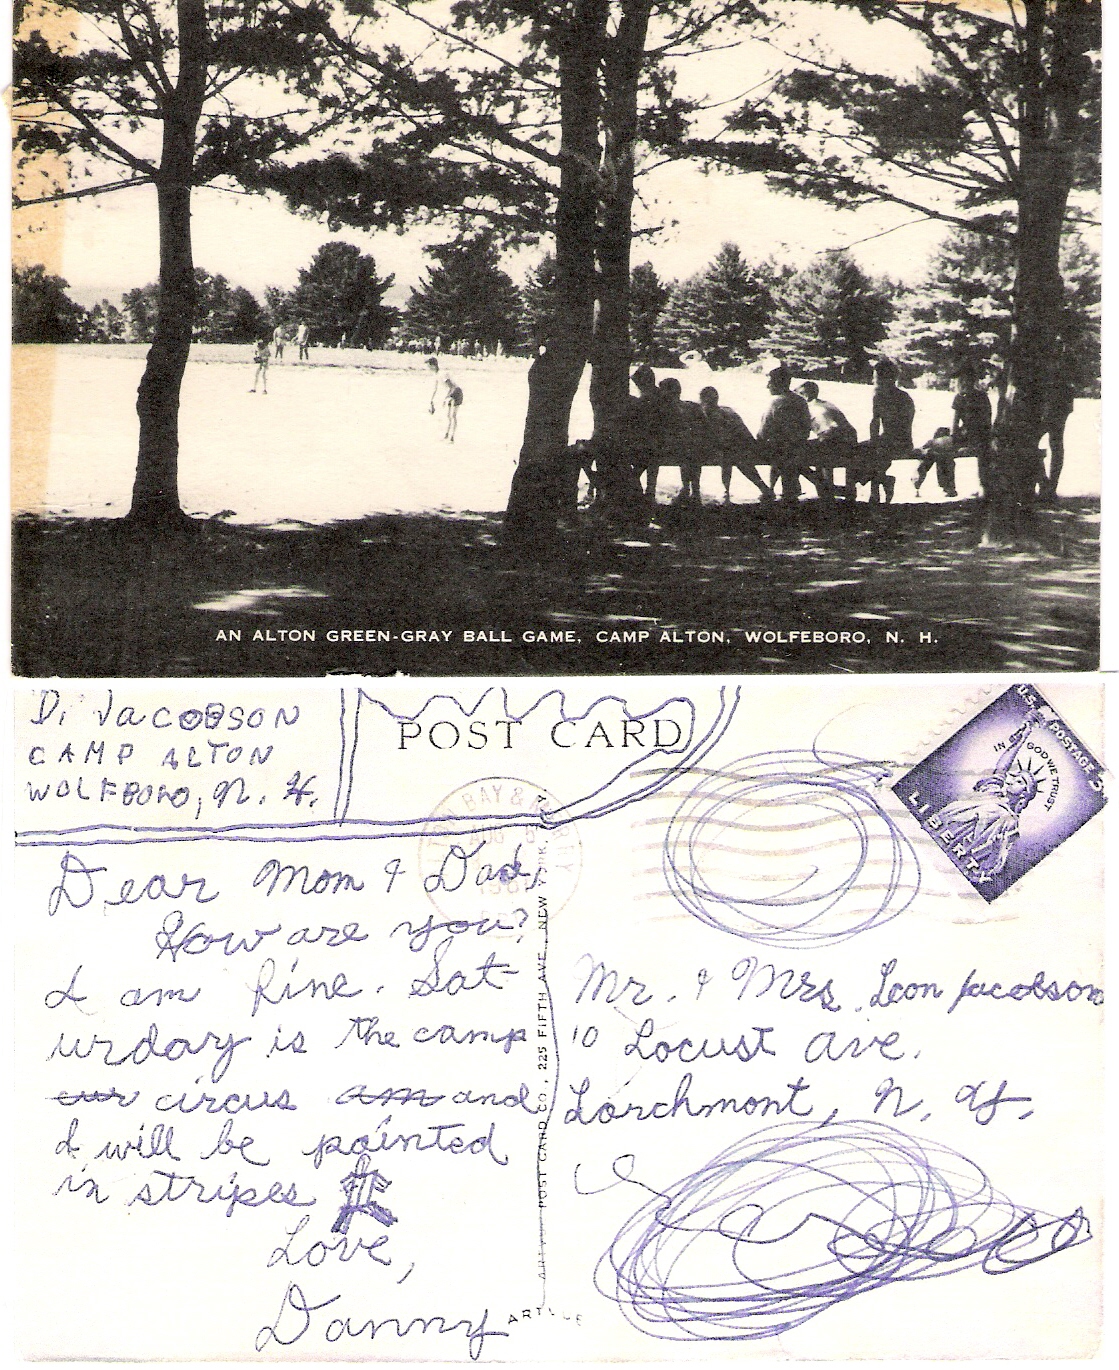 AN ALTON GREEN-GRAY BALL GAME, CAMP ALTON, WOLFEBORO, N. H.
D. Jacobson
CAMP ALTON
WOLFBORO, N. H.
POST CARD
U.S. POSTAGE 3¢
IN GOD WE TRUST
LIBERTY
BAY &
AUG
Dear Mom & Dad,
How are you?
I am fine. Sat-
urday is the camp
cur circus am and
I will be painted
in stripes
Love,
Danny
POST CARD CO., 225 FIFTH AVE., NEW YORK
ARTVUE
Mr. & Mrs. Leon Jacobson
10 Locust Ave.
Larchmont, N. Y.